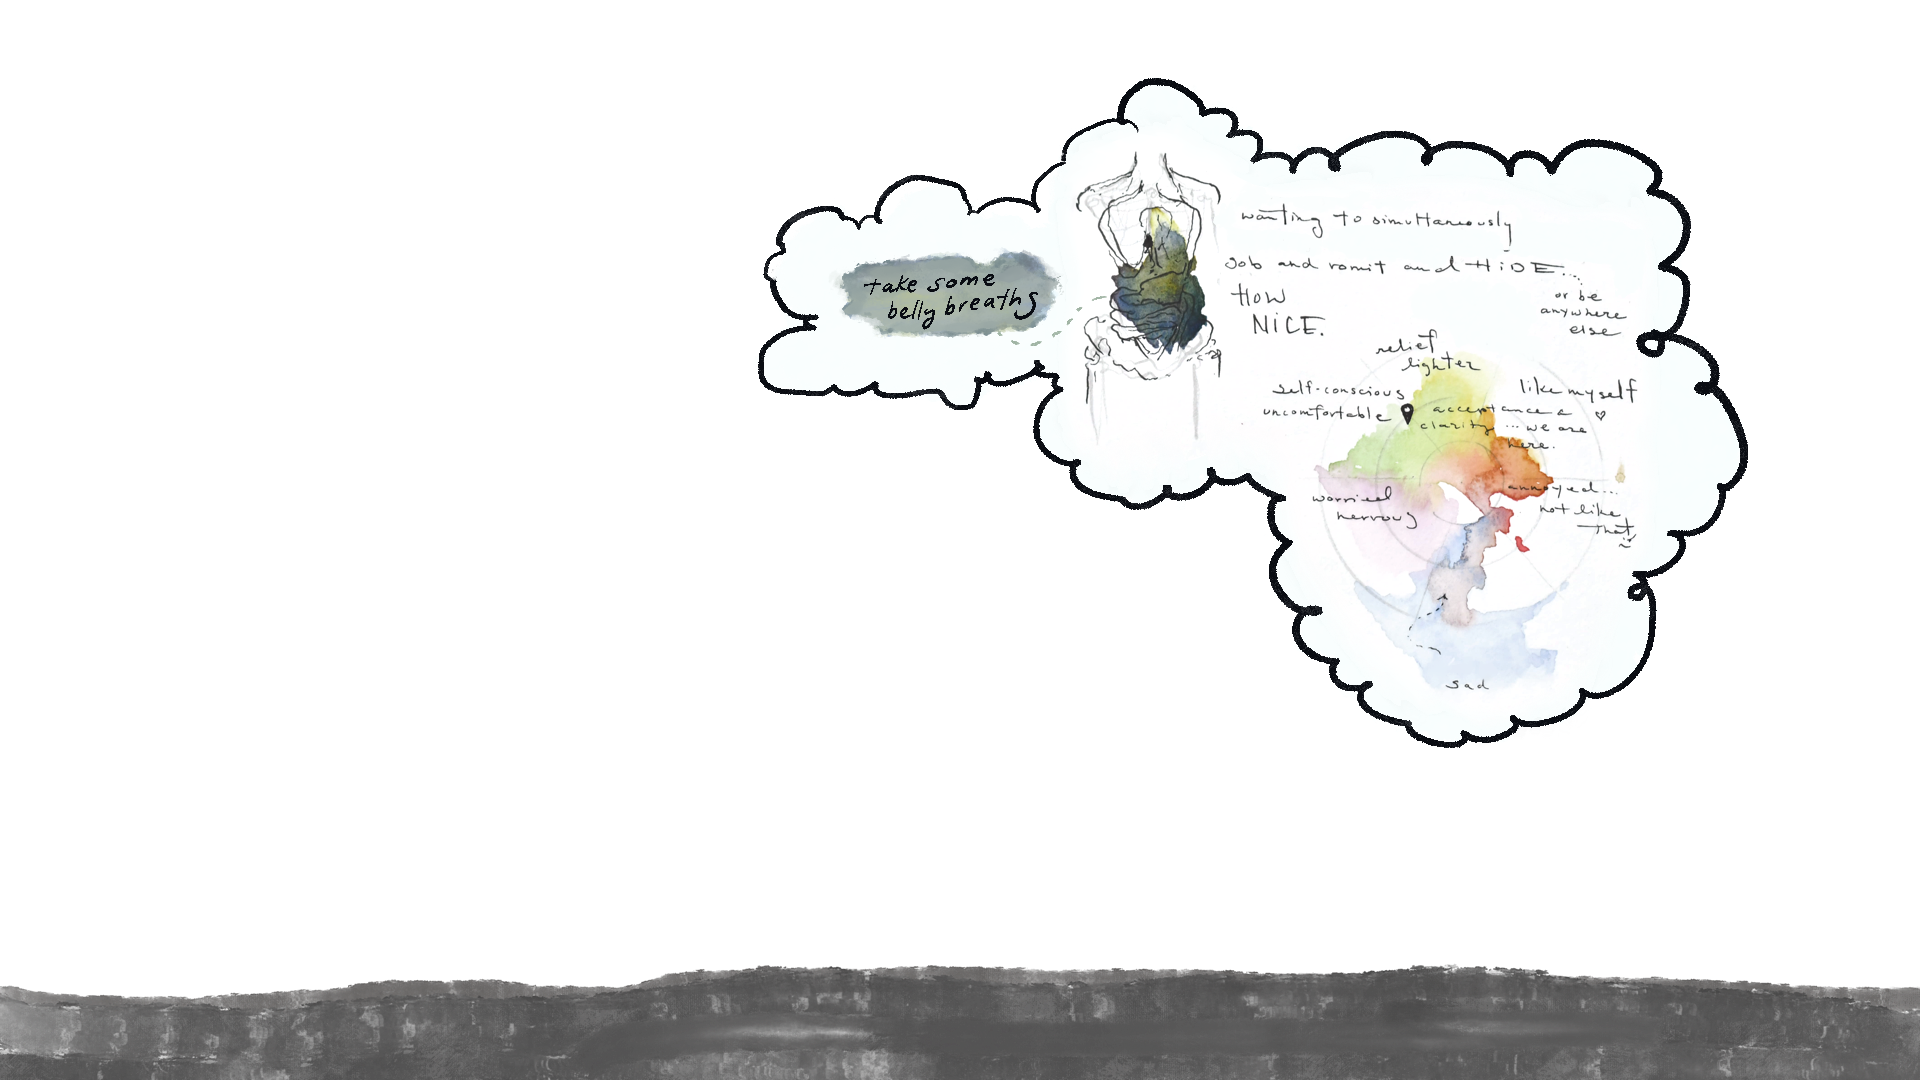 take some
belly breaths
wanting to simultaneously
sob and vomit and HiDE...
or be
anywhere
else
HOW
NiCE.
relief
lighter
self-conscious
uncomfortable
like myself
acceptance &
clarity ... we are
here.
worried
nervous
annoyed...
not like
that
sad